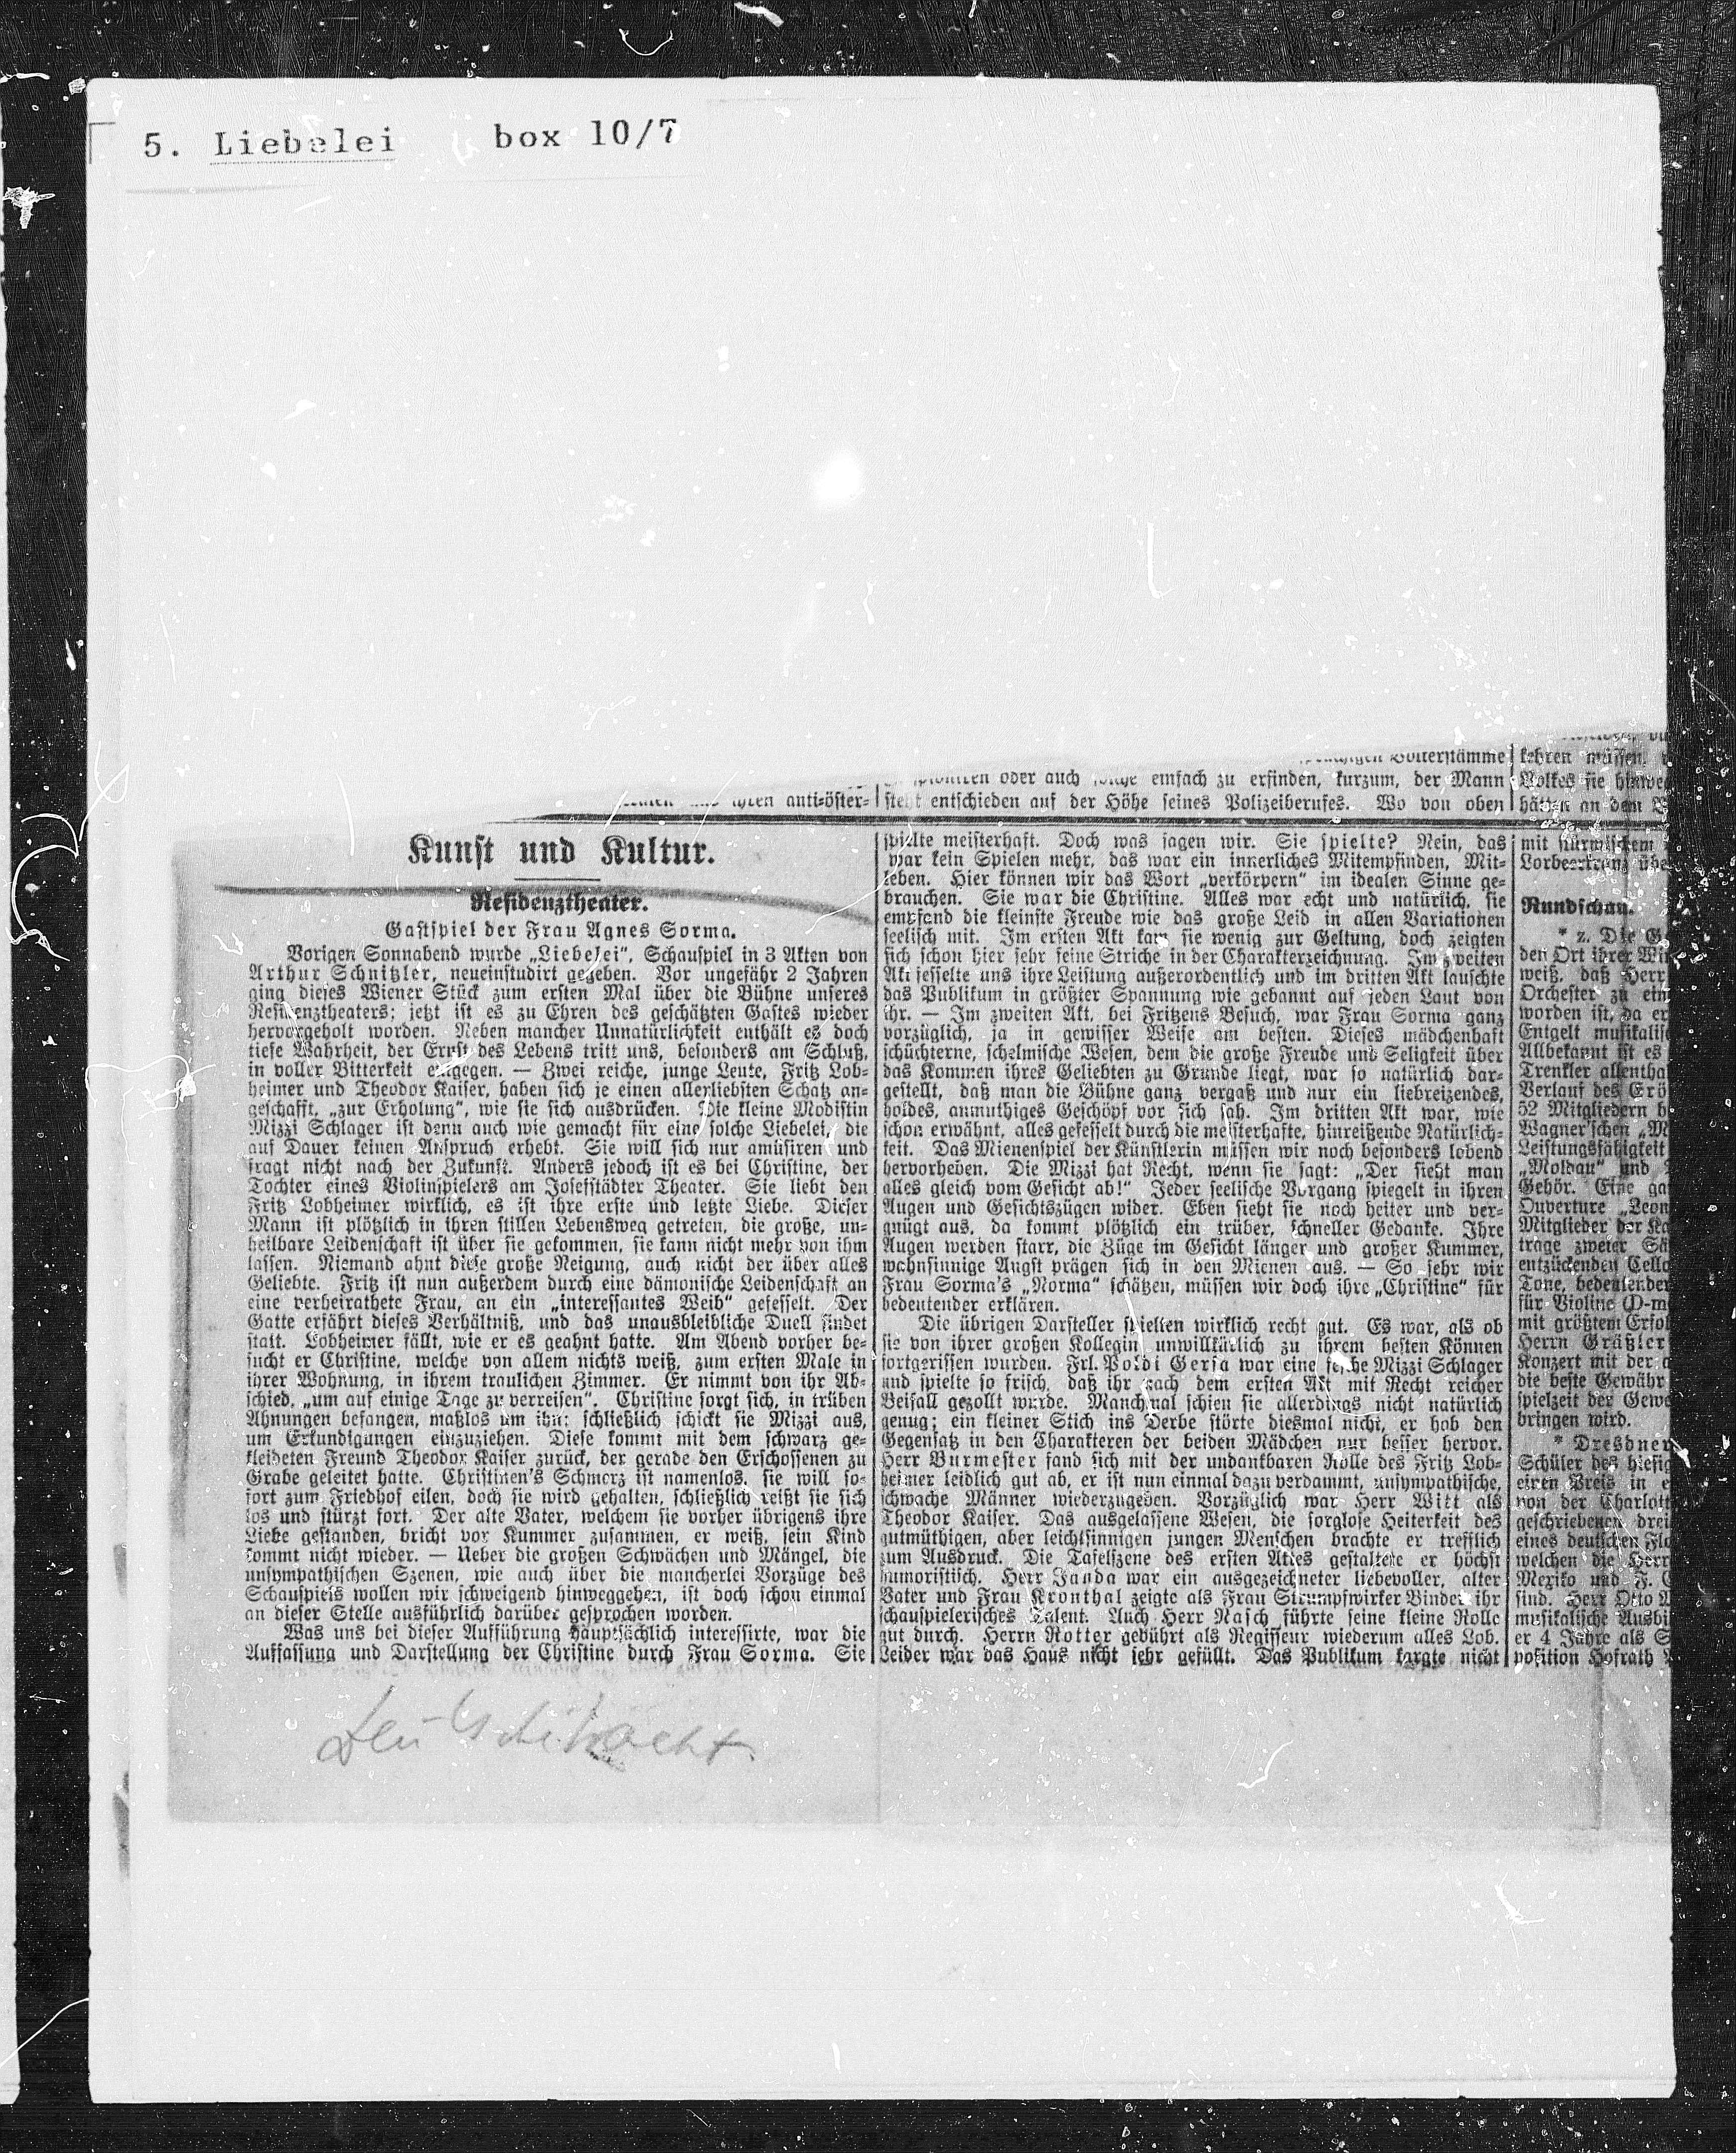 5. Liebelei box 10/7
Völkerstämme
oder auch solche einfach zu erfinden, kurzum, der Mann
ihren anti-öster-
steht entschieden auf der Höhe seines Polizeiberufes. Wo von oben
kehren müssen,
Volkes sie hinweg
hätten an dem
Kunst und Kultur.
Residenztheater.
Gastspiel der Frau Agnes Sorma.
Vorigen Sonnabend wurde „Liebelei“, Schauspiel in 3 Akten von
Arthur Schnitzler, neueinstudirt gegeben. Vor ungefähr 2 Jahren
ging dieses Wiener Stück zum ersten Mal über die Bühne unseres
Residenztheaters; jetzt ist es zu Ehren des geschätzten Gastes wieder
hervorgeholt worden. Neben mancher Unnatürlichkeit enthält es doch
tiefe Wahrheit, der Ernst des Lebens tritt uns, besonders am Schluß,
in voller Bitterkeit entgegen. — Zwei reiche, junge Leute, Fritz Lob-
heimer und Theodor Kaiser, haben sich je einen allerliebsten Schatz an-
geschafft, „zur Erholung“, wie sie sich ausdrücken. Die kleine Modistin
Mizzi Schlager ist denn auch wie gemacht für eine solche Liebelei, die
auf Dauer keinen Anspruch erhebt. Sie will sich nur amüsiren und
fragt nicht nach der Zukunft. Anders jedoch ist es bei Christine, der
Tochter eines Violinspielers am Josefstädter Theater. Sie liebt den
Fritz Lobheimer wirklich, es ist ihre erste und letzte Liebe. Dieser
Mann ist plötzlich in ihren stillen Lebensweg getreten, die große, un-
heilbare Leidenschaft ist über sie gekommen, sie kann nicht mehr von ihm
lassen. Niemand ahnt diese große Neigung, auch nicht der über alles
Geliebte. Fritz ist nun außerdem durch eine dämonische Leidenschaft an
eine verheirathete Frau, an ein „interessantes Weib“ gefesselt. Der
Gatte erfährt dieses Verhältniß, und das unausbleibliche Duell findet
statt. Lobheimer fällt, wie er es geahnt hatte. Am Abend vorher be-
sucht er Christine, welche von allem nichts weiß, zum ersten Male in
ihrer Wohnung, in ihrem traulichen Zimmer. Er nimmt von ihr Ab-
schied, „um auf einige Tage zu verreisen“. Christine sorgt sich, in trüben
Ahnungen befangen, maßlos um ihn; schließlich schickt sie Mizzi aus,
um Erkundigungen einzuziehen. Diese kommt mit dem schwarz ge-
kleideten Freund Theodor Kaiser zurück, der gerade den Erschossenen zu
Grabe geleitet hatte. Christinen's Schmerz ist namenlos, sie will so-
fort zum Friedhof eilen, doch sie wird gehalten, schließlich reißt sie sich
los und stürzt fort. Der alte Vater, welchem sie vorher übrigens ihre
Liebe gestanden, bricht vor Kummer zusammen, er weiß, sein Kind
kommt nicht wieder. — Ueber die großen Schwächen und Mängel, die
unsympathischen Szenen, wie auch über die mancherlei Vorzüge des
Schauspiels wollen wir schweigend hinweggehen, ist doch schon einmal
an dieser Stelle ausführlich darüber gesprochen worden.
Was uns bei dieser Aufführung hauptsächlich interessirte, war die
Auffassung und Darstellung der Christine durch Frau Sorma. Sie
spielte meisterhaft. Doch was sagen wir. Sie spielte? Nein, das
war kein Spielen mehr, das war ein innerliches Mitempfinden, Mit-
leben. Hier können wir das Wort „verkörpern“ im idealen Sinne ge-
brauchen. Sie war die Christine. Alles war echt und natürlich, sie
empfand die kleinste Freude wie das große Leid in allen Variationen
seelisch mit. Im ersten Akt kam sie wenig zur Geltung, doch zeigten
sich schon hier sehr feine Striche in der Charakterzeichnung. Im zweiten
Akt fesselte uns ihre Leistung außerordentlich und im dritten Akt lauschte
das Publikum in größter Spannung wie gebannt auf jeden Laut von
ihr. — Im zweiten Akt, bei Fritzens Besuch, war Frau Sorma ganz
vorzüglich, ja in gewisser Weise am besten. Dieses mädchenhaft
schüchterne, schelmische Wesen, dem die große Freude und Seligkeit über
das Kommen ihres Geliebten zu Grunde liegt, war so natürlich dar-
gestellt, daß man die Bühne ganz vergaß und nur ein liebreizendes,
holdes, anmuthiges Geschöpf vor sich sah. Im dritten Akt war, wie
schon erwähnt, alles gefesselt durch die meisterhafte, hinreißende Natürlich-
keit. Das Mienenspiel der Künstlerin müssen wir noch besonders lobend
hervorheben. Die Mizzi hat Recht, wenn sie sagt: „Der sieht man
alles gleich vom Gesicht ab!“ Jeder seelische Vorgang spiegelt in ihren
Augen und Gesichtszügen wider. Eben sieht sie noch heiter und ver-
gnügt aus, da kommt plötzlich ein trüber, schneller Gedanke. Ihre
Augen werden starr, die Züge im Gesicht länger und großer Kummer,
wahnsinnige Angst prägen sich in den Mienen aus. — So sehr wir
Frau Sorma's „Norma“ schätzen, müssen wir doch ihre „Christine“ für
bedeutender erklären.
Die übrigen Darsteller spielten wirklich recht gut. Es war, als ob
sie von ihrer großen Kollegin unwillkürlich zu ihrem besten Können
fortgerissen wurden. Frl. Poldi Gersa war eine fesche Mizzi Schlager
und spielte so frisch, daß ihr nach dem ersten Akt mit Recht reicher
Beifall gezollt wurde. Manchmal schien sie allerdings nicht natürlich
genug; ein kleiner Stich ins Derbe störte diesmal nicht, er hob den
Gegensatz in den Charakteren der beiden Mädchen nur besser hervor.
Herr Burmester fand sich mit der undankbaren Rolle des Fritz Lob-
heimer leidlich gut ab, er ist nun einmal dazu verdammt, unsympathische,
schwache Männer wiederzugeben. Vorzüglich war Herr Witt als
Theodor Kaiser. Das ausgelassene Wesen, die sorglose Heiterkeit des
gutmüthigen, aber leichtsinnigen jungen Menschen brachte er trefflich
zum Ausdruck. Die Tafelszene des ersten Aktes gestaltete er höchst
humoristisch. Herr Janda war ein ausgezeichneter liebevoller, alter
Vater und Frau Kronthal zeigte als Frau Strumpfwirker Binder ihr
schauspielerisches Talent. Auch Herr Rasch führte seine kleine Rolle
gut durch. Herrn Rotter gebührt als Regisseur wiederum alles Lob.
Leider war das Haus nicht sehr gefüllt. Das Publikum kargte nicht
mit stürmischem
Lorbeerkranz übe
Rundschau.
* z. Die G
den Ort ihrer Wir
weiß, daß Herr
Orchester zu ein
worden ist, da er
Entgelt musikalis
Allbekannt ist es
Trenkler allentha
Verlauf des Erö
52 Mitgliedern b
Wagner'schen „M
Leistungsfähigkeit
„Moldau“ und
Gehör. Eine ga
Ouverture „Leon
Mitglieder der Ka
trage zweier Sä
entzückenden Cello
Tone, bedeutender
für Violine (D-m
mit größtem Erfol
Herrn Gräßler
Konzert mit der a
die beste Gewähr
spielzeit der Gewe
bringen wird.
* Dresdner
Schüler des hiesig
einen Preis in e
von der Charlott
geschriebenen drei
eines deutschen Flo
welchen die Herr
Mexiko und F. C
sind. Herr Otto W
musikalische Ausbi
er 4 Jahre als S
position Hofrath